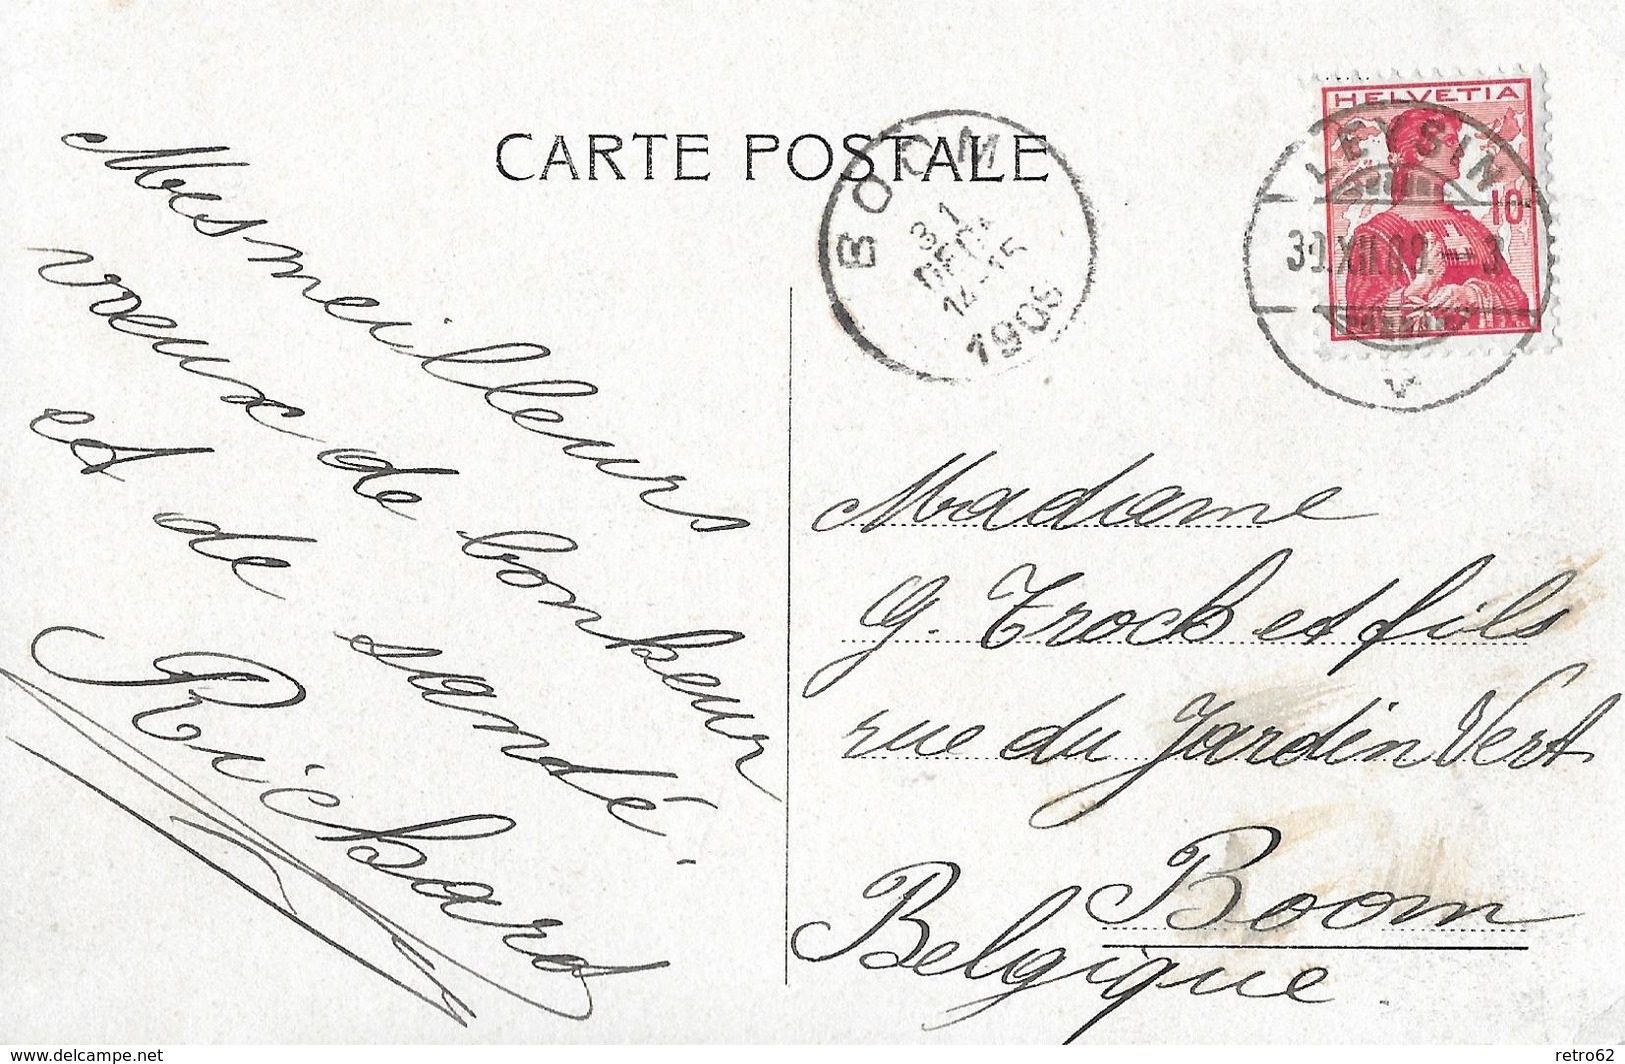 CARTE POSTALE
HELVETIA
10
LEYSIN
30.XII.09.
BOOM
31
DEC
14-15
Mes meilleurs
voeux de bonheur
et de santé.
Richard
Madame
G. Trock et fils
rue du Jardin Vert
Boom
Belgique.
www.delcampe.net
retro62